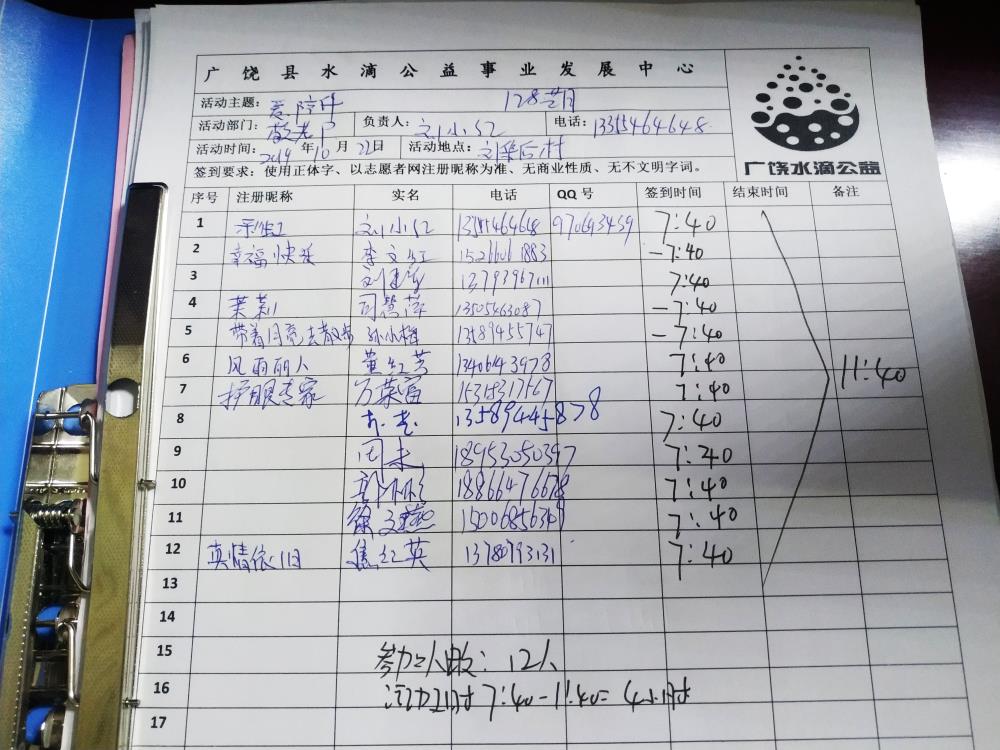 广饶县水滴公益事业发展中心
活动主题: 爱陪伴 128
活动部门: 敬老 负责人: 刘小红 电话: 13355464648
活动时间: 2019 年 10 月 22 日 活动地点: 刘集后村
签到要求: 使用正体字、以志愿者网注册昵称为准、无商业性质、无不文明字词。
广饶水滴公益
序号 注册昵称 实名 电话 QQ 号 签到时间 结束时间 备注
1 刘小红 970693439 7:40
2 幸福快乐 李文红 15266061883 7:40
3 13793967111 7:40
4 茉莉 司慧萍 13505463087 7:40
5 带着月亮去散步 孙小梅 13589455747 7:40
6 风雨丽人 董红芸 13406143978 7:40
7 护眼专家 万荣富 15315317567 7:40
11:40
8 13589445878 7:40
9 18953050397 7:40
10 18866476678 7:40
11 徐文燕 15006856349 7:40
12 真情依旧 焦红英 13780793131 7:40
13
14
15 参加人数: 12人
16 活动时 7:40-11:40=4小时
17